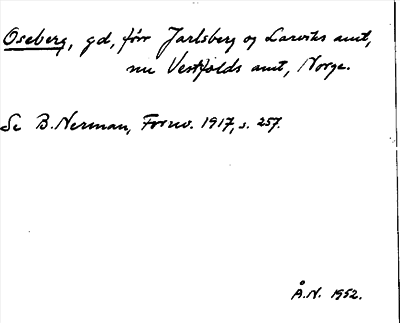 Oseberg, gd, förr Jarlsberg og Larviks amt,
nu Vestfolds amt, Norge.
Se B. Nerman, Fornv. 1917, s. 257.
Å.N. 1952.